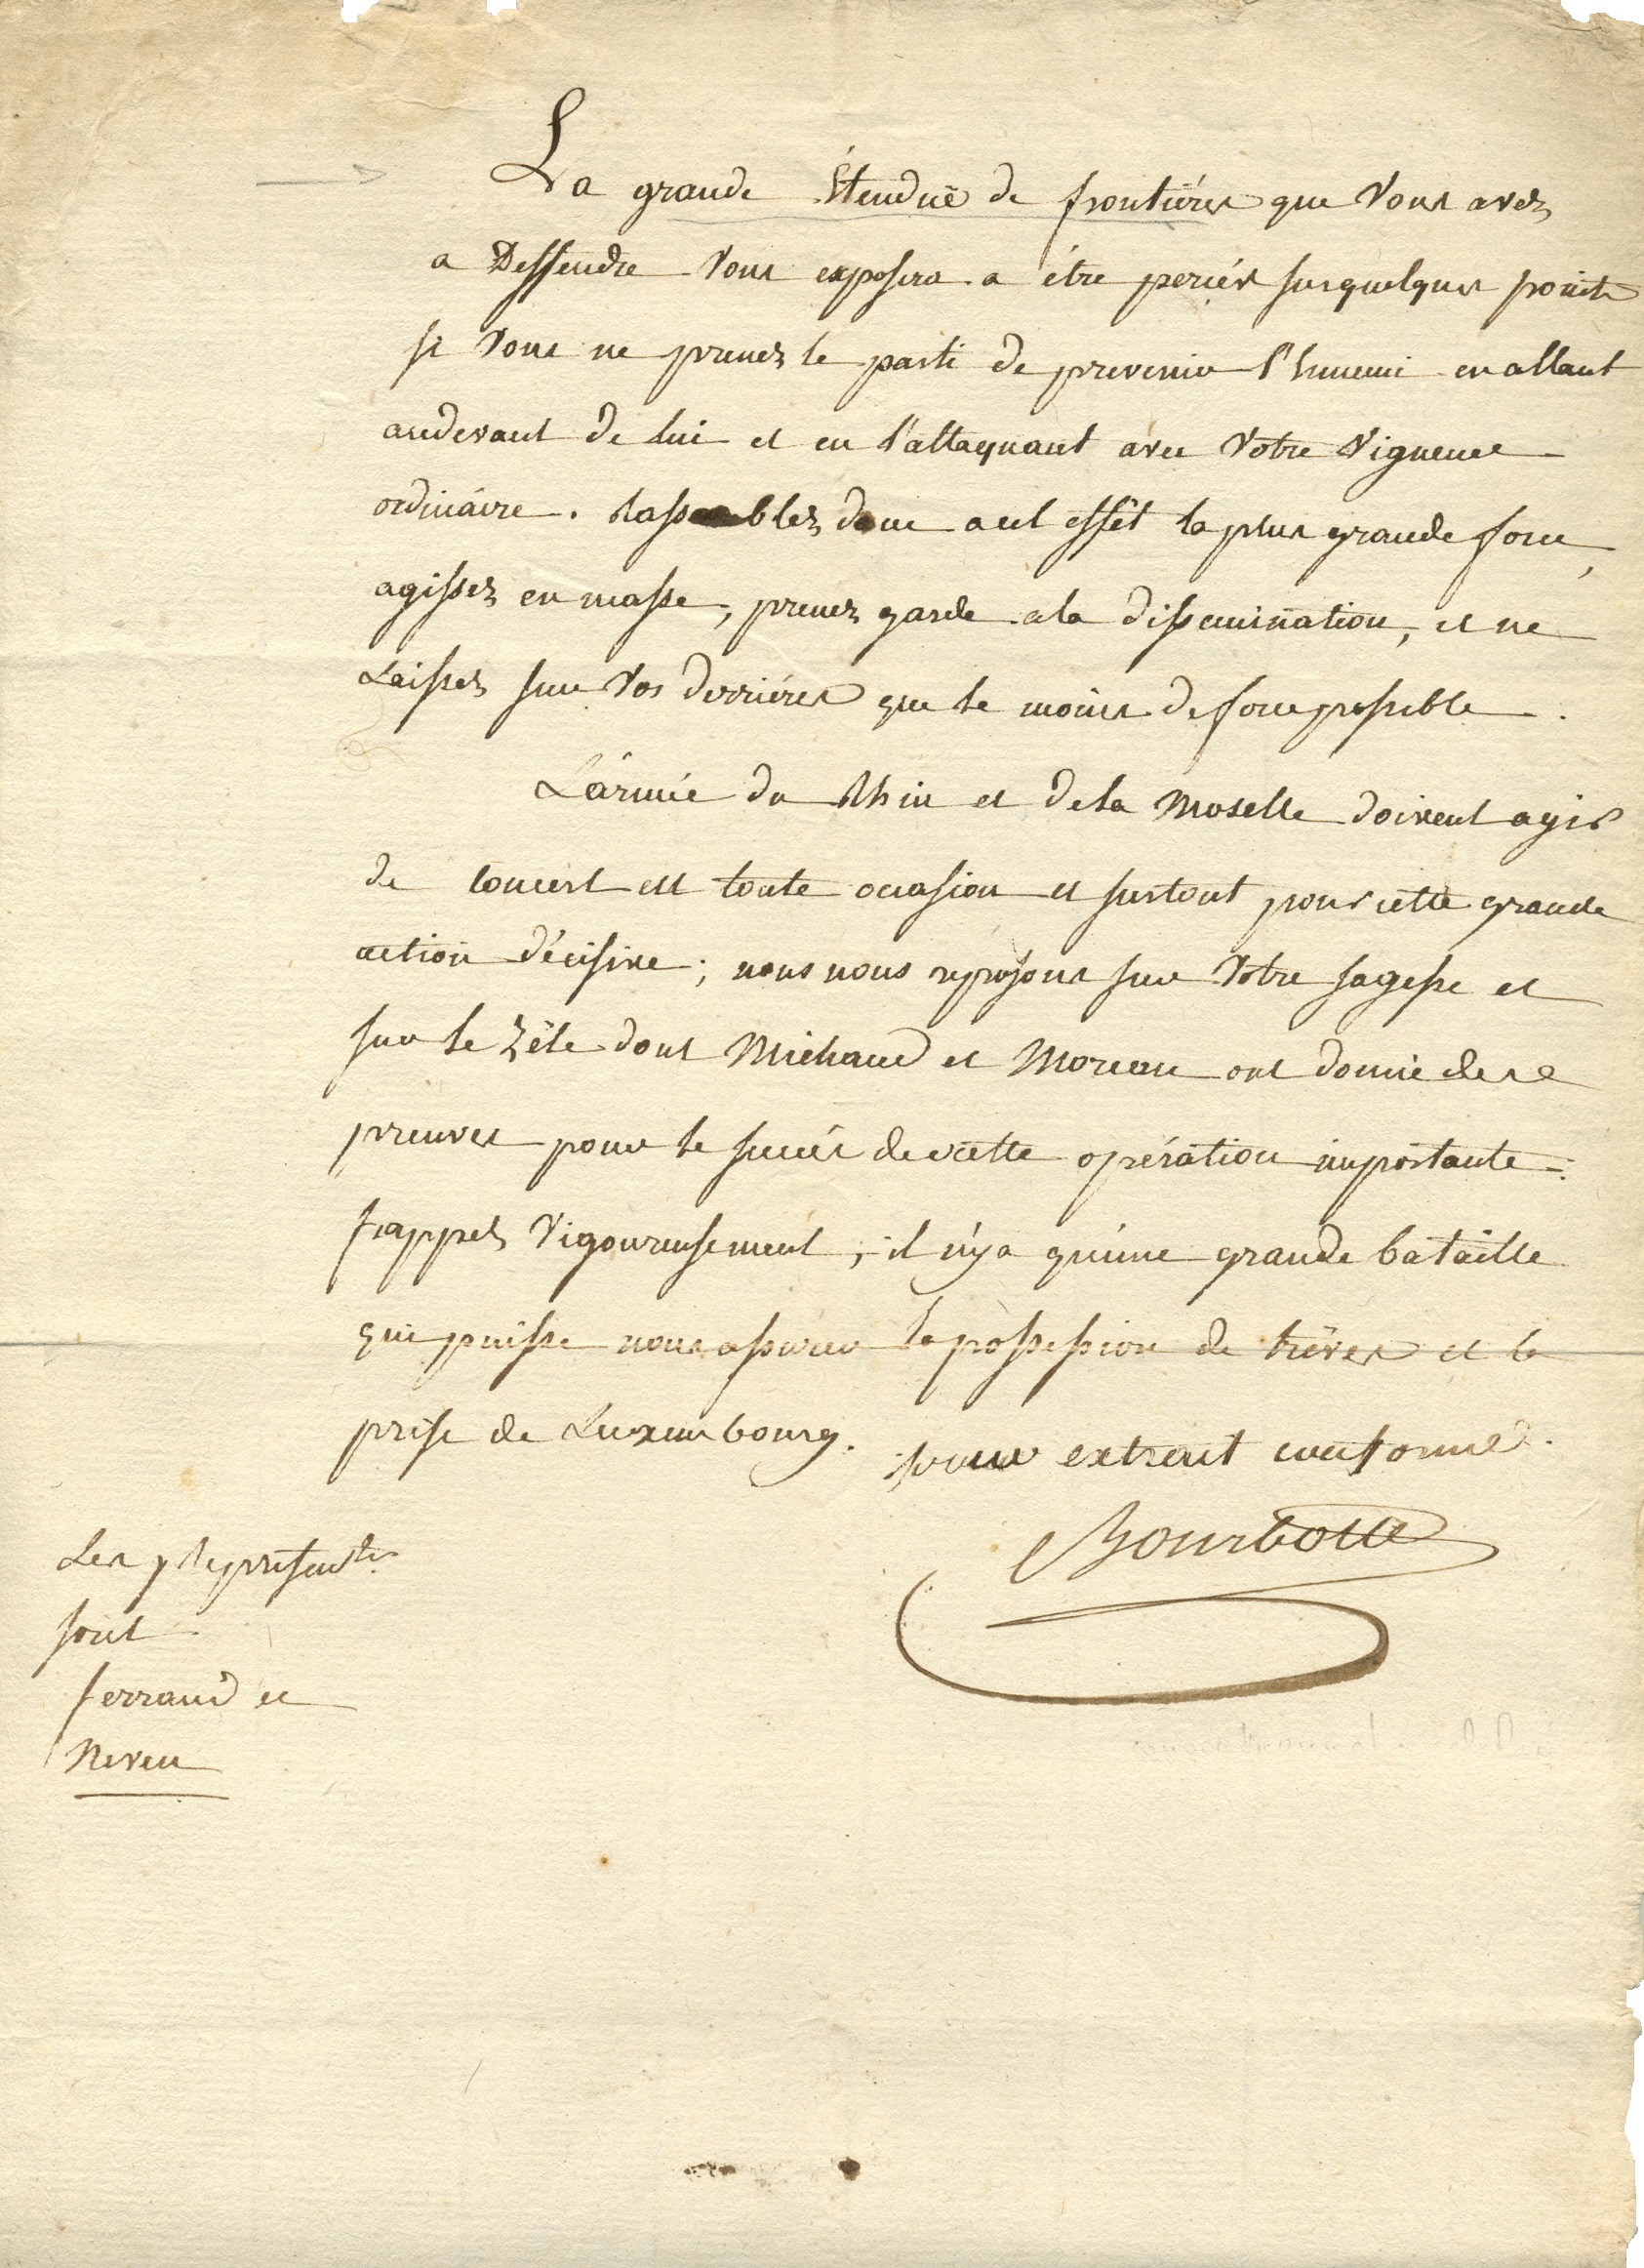 La grande Étenduë de frontiéres que Vous avez
a Deffendre Vous exposera a étre percés sur quelques points
si Vous ne prenez le parti de prevenir l'Ennemi en allant
audevant de lui et en l'attaquant avec Votre Vigueur
ordinaire. Rassemblez donc a cet effét la plus grande force,
agissez en masse, prenez garde a la dissemination, et ne
Laissez sur Vos derriéres que le moins de force possible.
L'armée du Rhin et de la Moselle doivent agir
de concert en toute occasion et surtout pour cette grande
action décisive; nous nous reposons sur Votre sagesse et
sur le Zéle dont Michaud et Moreau ont donné des
preuves pour le succés de cette opération importante.
frappez Vigoureusement, il n'y a qu'une grande bataille
qui puisse nous assurer la possession de tréves et la
prise de Luxembourg.
pour extrait conforme.
Bourbotte
Les Represent.ts
sont
ferrand et
Neveu